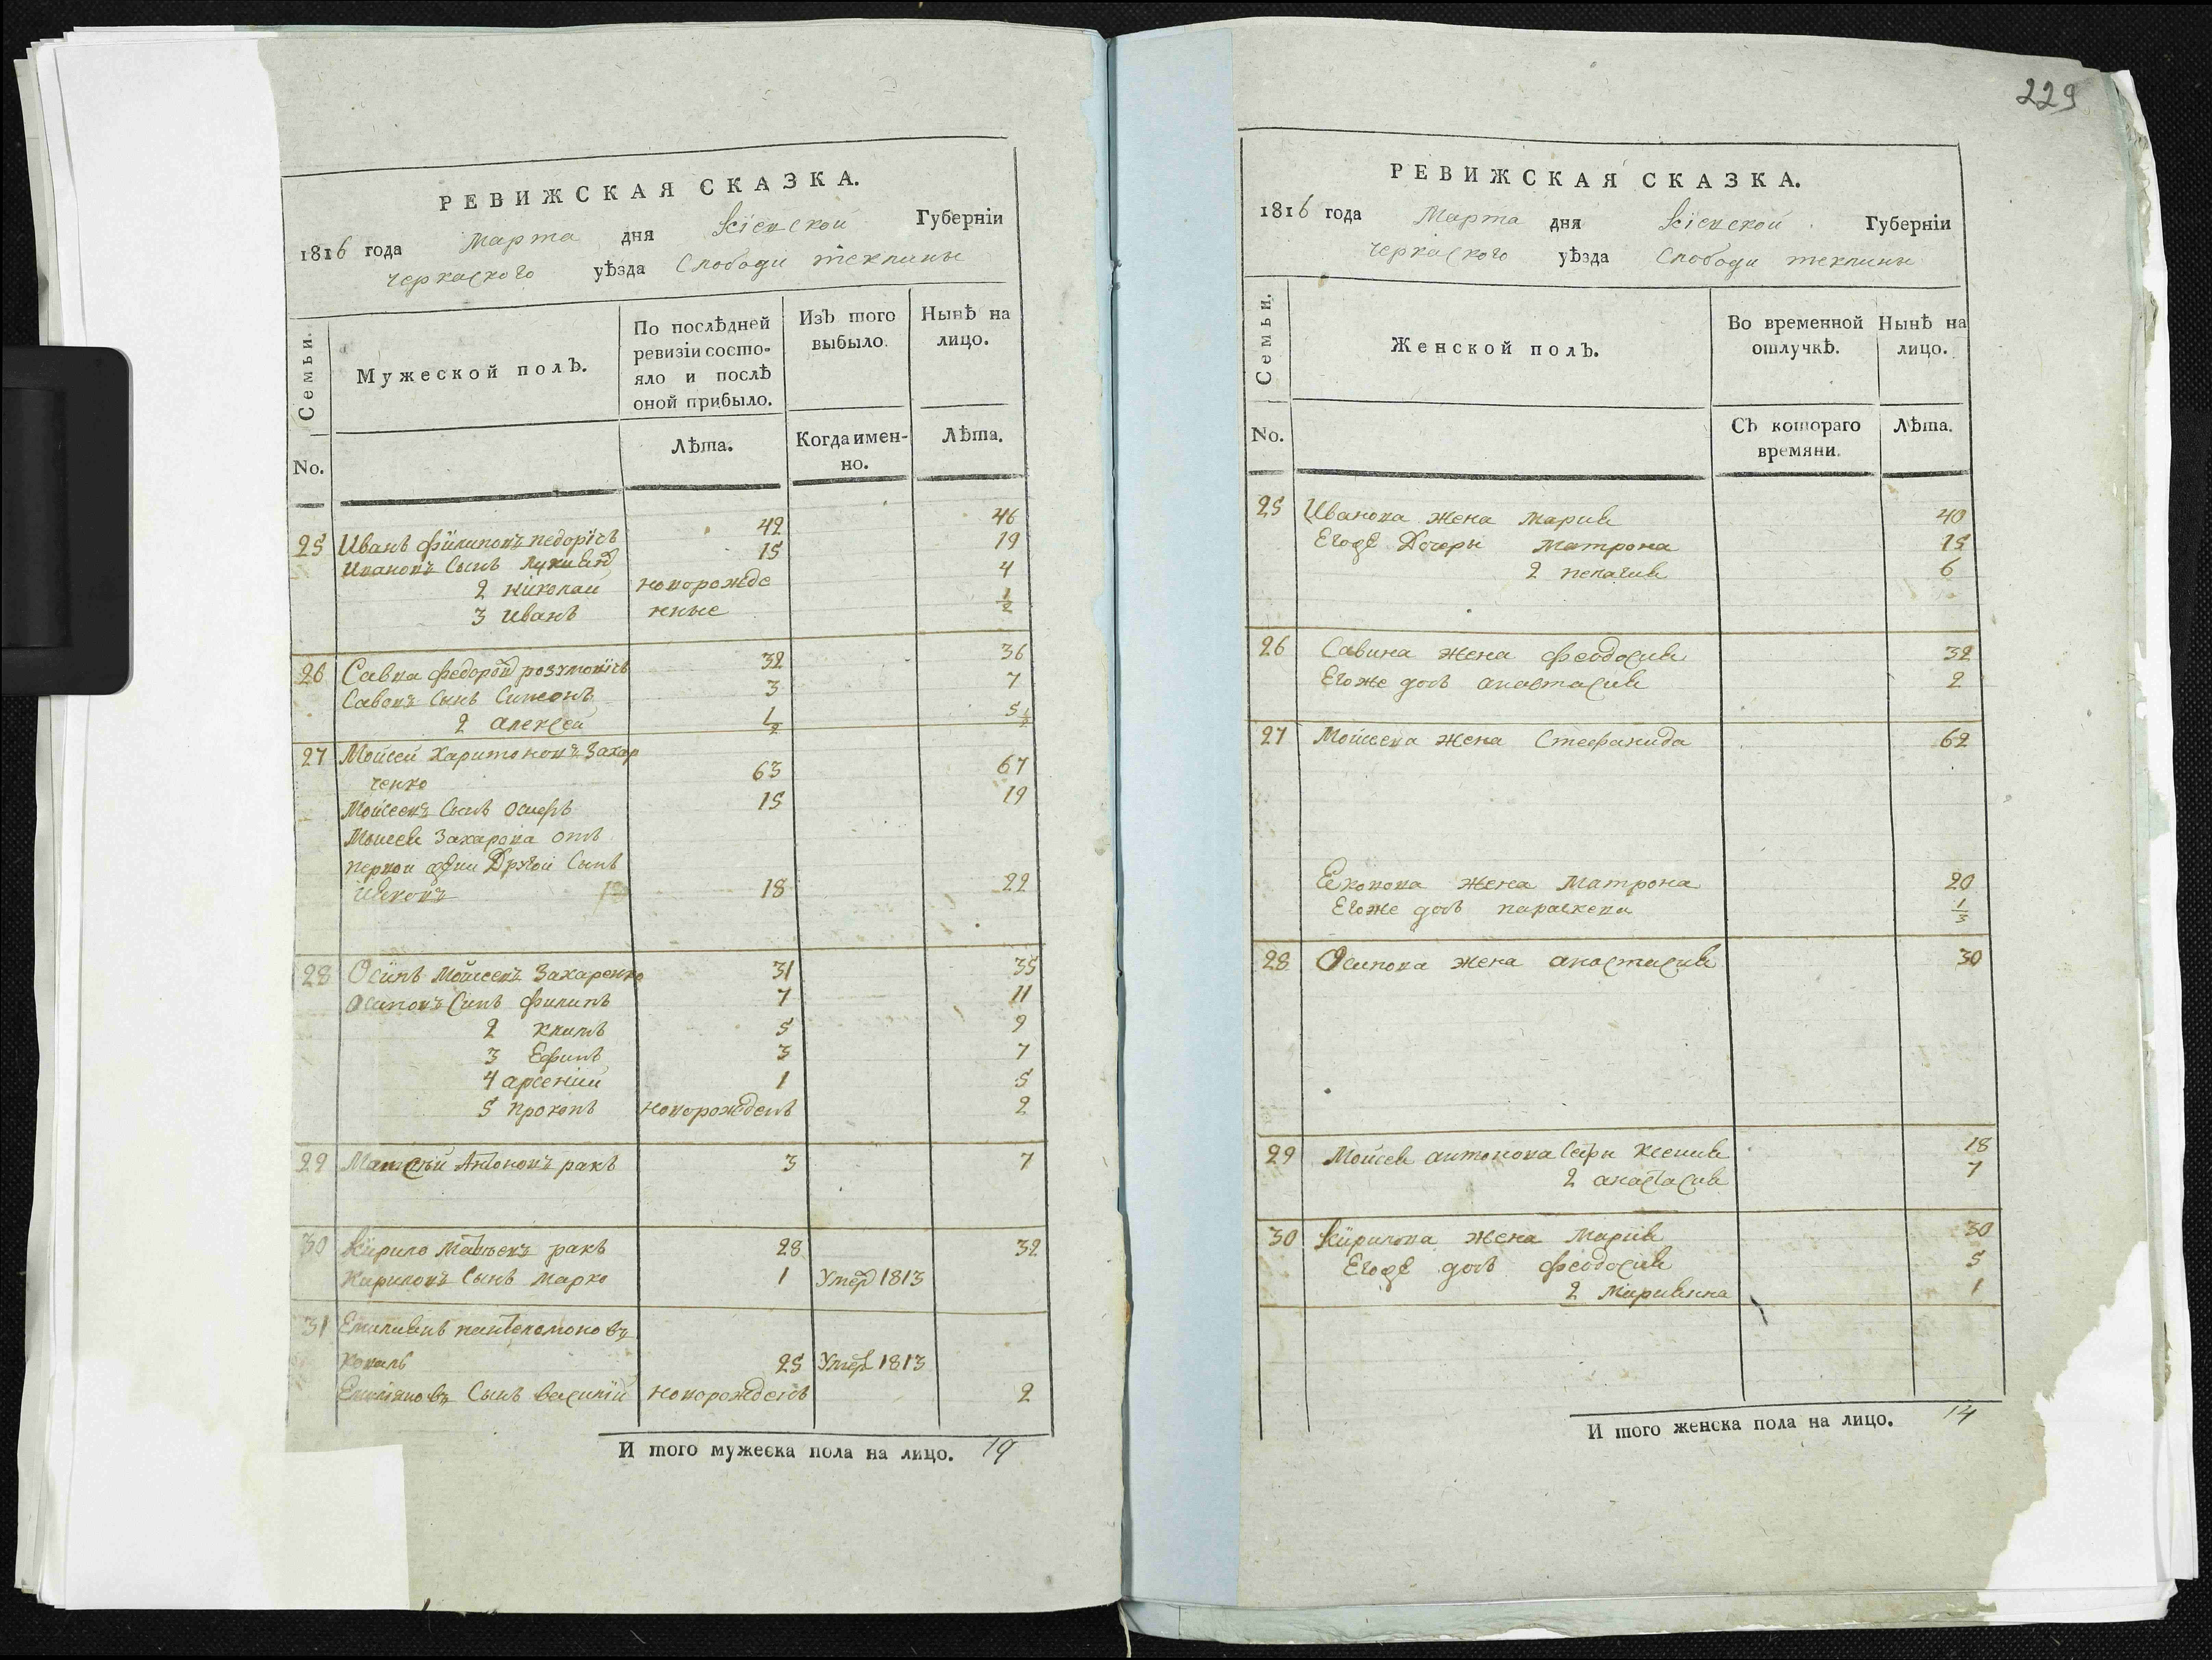 РЕВИЖСКАЯ СКАЗКА.
1816 года Марта дня Кіевской Губерніи
Черкаского уѣзда Слободи теклины
Семьи.
Мужеской полъ.
По послѣдней ревизіи состо-
яло и послѣ
оной прибыло.
Изъ того
выбыло.
Нынѣ на
лицо.
No.
Лѣта.
Когда имен-
но.
Лѣта.
25 Иванъ филиповъ 42 46
Ивановъ Сынъ 15 19
2 николай новорожде 4
3 иванъ нные 1/2
26 Савка федоров 32 36
Савовъ Сынъ Симеонъ 3 7
2 алексей 1/2 5 1/2
27 Мойсей Харитоновъ Захар
ченко 63 67
Мойсеевъ Сынъ осифъ 15 19
Мойсея Захарова отъ
первой жени Другой Сынъ
Яковъ 18 22
28 Осипъ Мойсеевъ Захаренко 31 35
Осиповъ Синъ филипъ 7 11
2 5 9
3 Ефимъ 3 7
4 арсений 1 5
5 прокопъ новорожденъ 2
29 Антоновъ ракъ 3 7
30 Кирило Матвеевъ ракъ 28 32
Кириловъ Сынъ марко 1 Умер 1813
31 Емилиянъ пантелемоновъ
Коваль 25 Умер 1813
Емилияновъ Сынъ василий новорожденъ 2
И того мужеска пола на лицо. 19
229
РЕВИЖСКАЯ СКАЗКА.
1816 года Марта дня Кіевской Губерніи
Черкаского уѣзда Слободи теклины
Семьи.
Женской полъ.
Во временной
отлучкѣ.
Нынѣ на
лицо.
No.
Съ котораго
времяни.
Лѣта.
25 Иванова жена Мария 40
Егоже Дочери Матрона 15
2 пелагия 6
26 Савина жена феодосия 32
Егоже дочь анастасия 2
27 Мойсеева жена Стефанида 62
Яковова жена Матрона 20
Егоже дочь параскева 1/3
28 Осипова жена анастасия 30
29 антонова Ксения 18
2 анастасия 7
30 Кирилова жена Мария 30
Егоже дочь феодосия 5
2 Мариянна 1
И того женска пола на лицо. 14